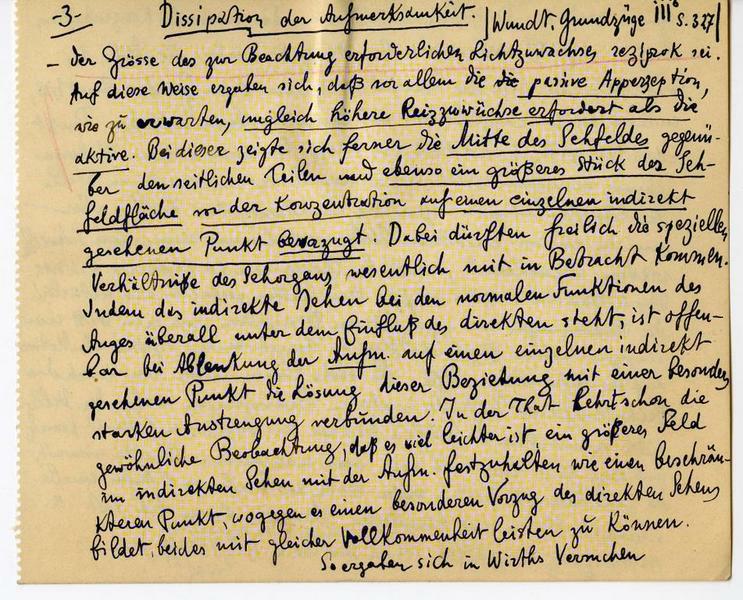 -3- Dissipation der Aufmerksamkeit. | Wundt, Grundzüge III⁶ S. 337 |
- der Grösse des zur Beachtung erforderlichen Lichtzuwachses reziprok sei.
Auf diese Weise ergaben sich, daß vor allem die die passive Apperzeption,
wie zu erwarten, ungleich höhere Reizzuwüchse erfordert als die
aktive. Bei dieser zeigte sich ferner die Mitte des Sehfeldes gegenü-
ber den seitlichen Teilen und ebenso ein größeres Stück der Seh-
feldfläche vor der Konzentration auf einen einzelnen indirekt
gesehenen Punkt bevorzugt. Dabei dürften freilich die speziellen
Verhältniße des Sehorgans wesentlich mit in Betracht kommen.
Indem das indirekte Sehen bei den normalen Funktionen des
Auges überall unter dem Einfluß des direkten steht, ist offen-
bar bei Ablenkung der Aufm. auf einen einzelnen indirekt
gesehenen Punkt die Lösung dieser Beziehung mit einer besonders
starken Anstrengung verbunden. In der That lehrt schon die
gewöhnliche Beobachtung, daß es viel leichter ist, ein größeres Feld
im indirekten Sehen mit der Aufm. festzuhalten wie einen beschrän-
kteren Punkt, wogegen es einen besonderen Vorzug des direkten Sehens
bildet, beides mit gleicher Vollkommenheit leisten zu können.
So ergaben sich in Wirths Versuchen